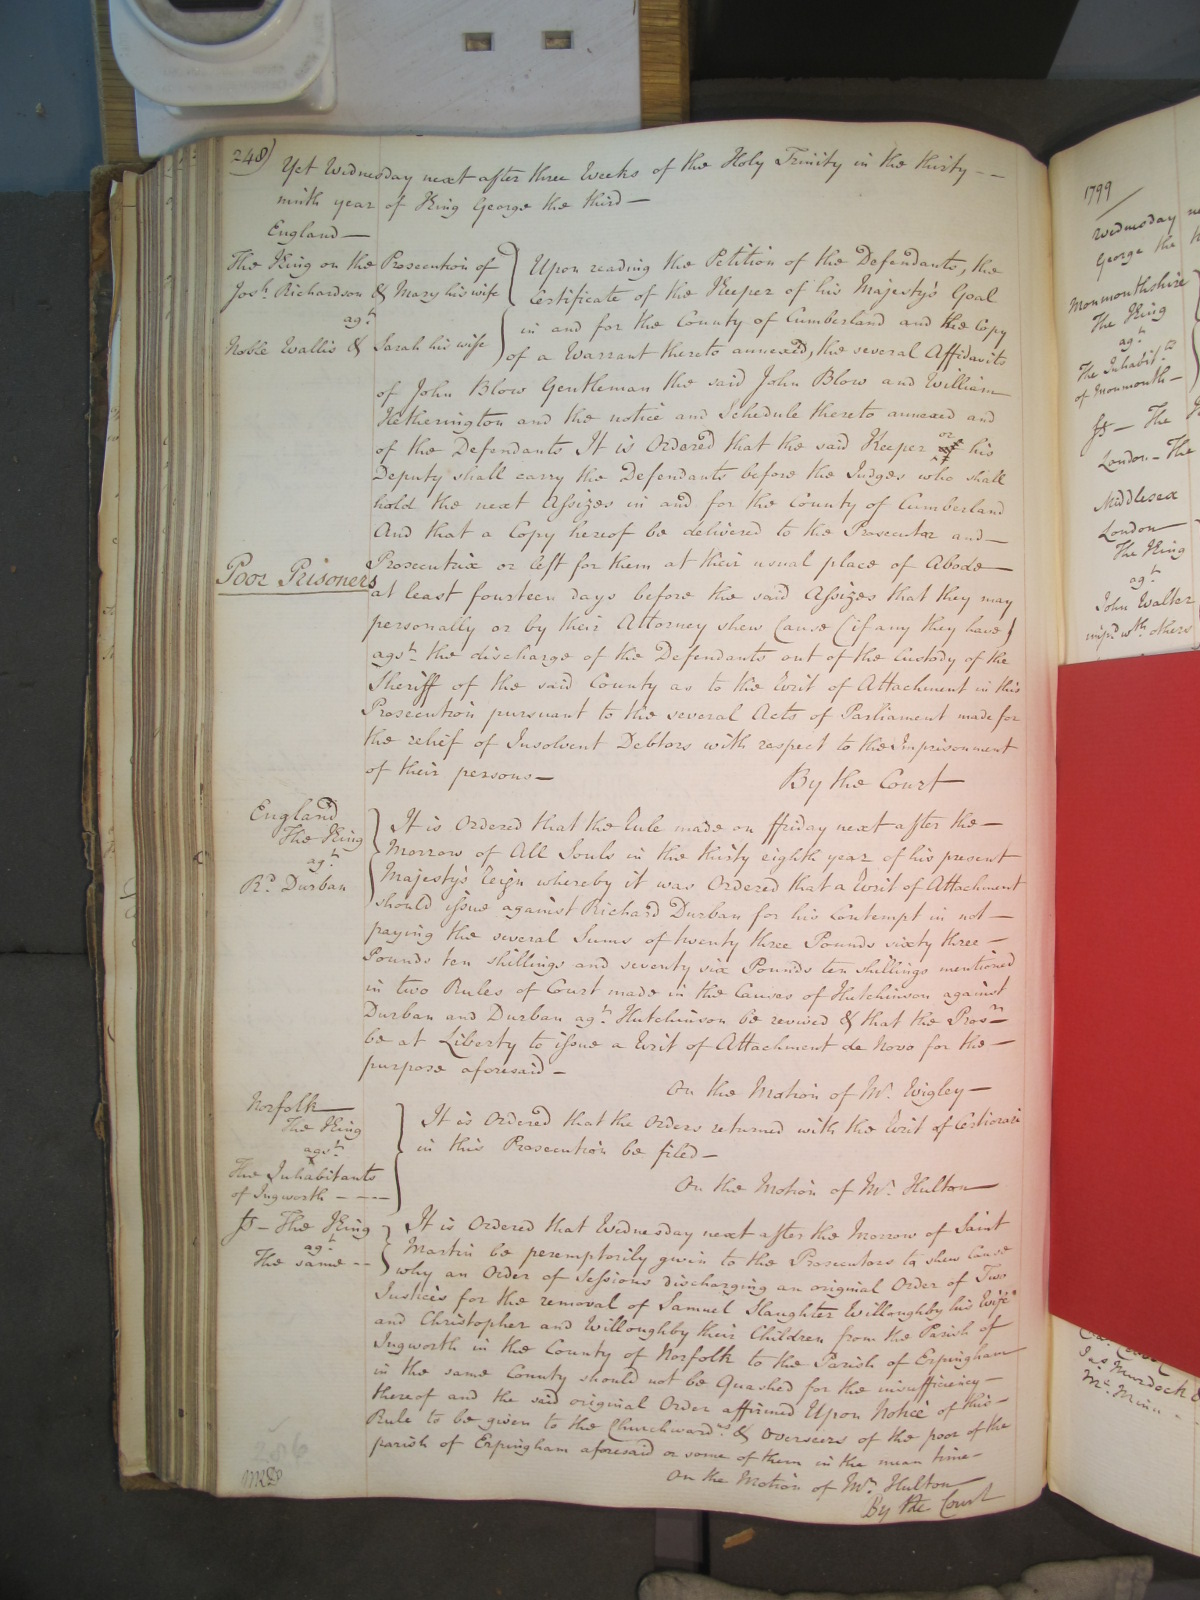 248)
Yet Wednesday next after three Weeks of the Holy Trinity in the thirty --
ninth year of King George the third —
England —
The King on the Prosecution of
Josh. Richardson & Mary his wife
agt.
Noble Wallis & Sarah his wife
Upon reading the Petition of the Defendants, the
Certificate of the Keeper of his Majesty's Goal
in and for the County of Cumberland and the Copy
of a Warrant thereto annexed, the several Affidavits
of John Blow Gentleman the said John Blow and William
Hetherington and the notice and Schedule thereto annexed and
of the Defendants It is Ordered that the said Keeper or his
Deputy shall carry the Defendants before the Judges who shall
hold the next Assizes in and for the County of Cumberland
And that a Copy hereof be delivered to the Prosecutor and —
Prosecutrix or left for them at their usual place of Abode —
Poor Prisoners
at least fourteen days before the said Assizes that they may
personally or by their Attorney shew Cause (if any they have)
agst. the discharge of the Defendants out of the Custody of the
Sheriff of the said County as to the Writ of Attachment in this
Prosecution pursuant to the several Acts of Parliament made for
the relief of Insolvent Debtors with respect to the Imprisonment
of their persons —
By the Court
England
The King
agt.
Rd. Durban
It is Ordered that the Rule made on ffriday next after the —
Morrow of All Souls in the thirty eighth year of his present
Majesty's Reign whereby it was Ordered that a Writ of Attachment
should issue against Richard Durban for his Contempt in not —
paying the several Sums of twenty three Pounds sixty three —
Pounds ten shillings and seventy six Pounds ten shillings mentioned
in two Rules of Court made in the Causes of Hutchinson against
Durban and Durban agt. Hutchinson be revived & that the Prosn. —
be at Liberty to issue a Writ of Attachment de Novo for the —
purpose aforesaid —
On the Motion of Mr. Wigley —
Norfolk
The King
agst.
The Inhabitants
of Ingworth - ---
It is Ordered that the Orders returned with the Writ of Certiorari
in this Prosecution be filed —
On the Motion of Mr. Hulton —
ss — The King
agt.
The same --
It is Ordered that Wednesday next after the Morrow of Saint
Martin be peremptorily given to the Prosecutors to shew Cause
why an Order of Sessions discharging an original Order of Two
Justices for the removal of Samuel Slaughter Willoughby his Wife
and Christopher and Willoughby their Children from the Parish of
Ingworth in the County of Norfolk to the Parish of Erpingham
in the same County should not be Quashed for the insufficiency —
thereof and the said original Order affirmed Upon Notice of this —
Rule to be given to the Churchwards. & Overseers of the poor of the
parish of Erpingham aforesaid or some of them in the mean time —
On the Motion of Mr. Hulton
By the Court
1799
Wednesday
George the
Monmouthshire
The King
agt.
The Inhabits.
of Monmouth —
ss — The
London — The
Middlesex
London
The King
agt.
John Walter
imp. wth. others
Jas Murdock &